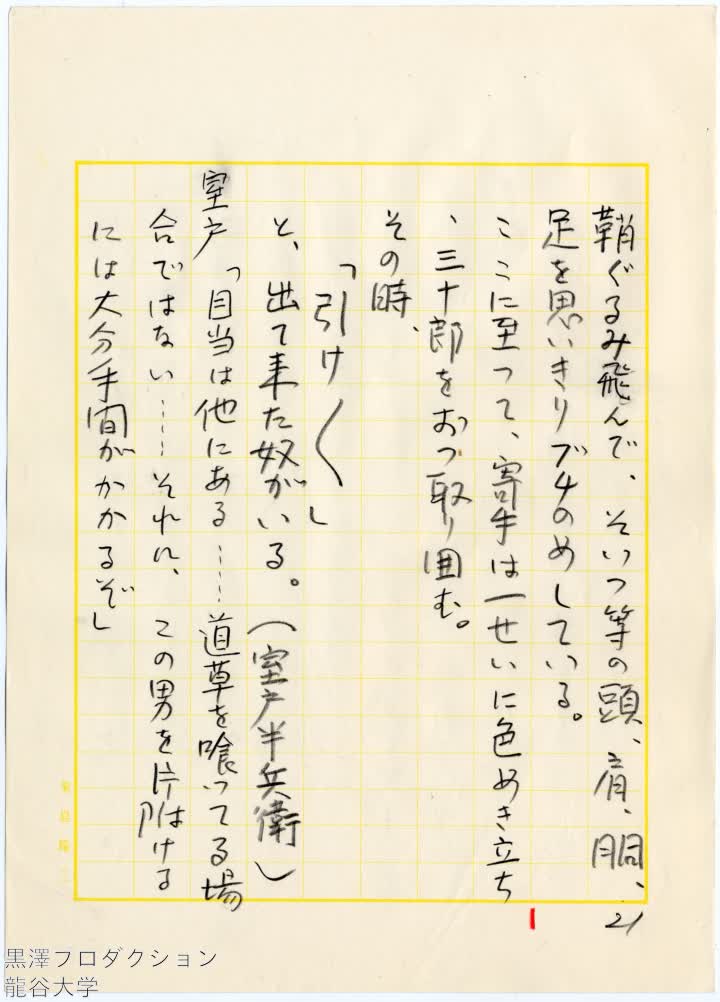 鞘ぐるみ飛んで、そいつ等の頭、肩、胴、
足を思いきりブチのめしている。
ここに至って、寄手は一せいに色めき立ち
、三十郎をおっ取り囲む。
その時、
「引け〱」
と、出て来た奴がいる。(室戸半兵衛)
室戸「目当は他にある……道草を喰ってる場
合ではない……それに、この男を片附ける
には大分手間がかかるぞ」
21
黒澤プロダクション
龍谷大学